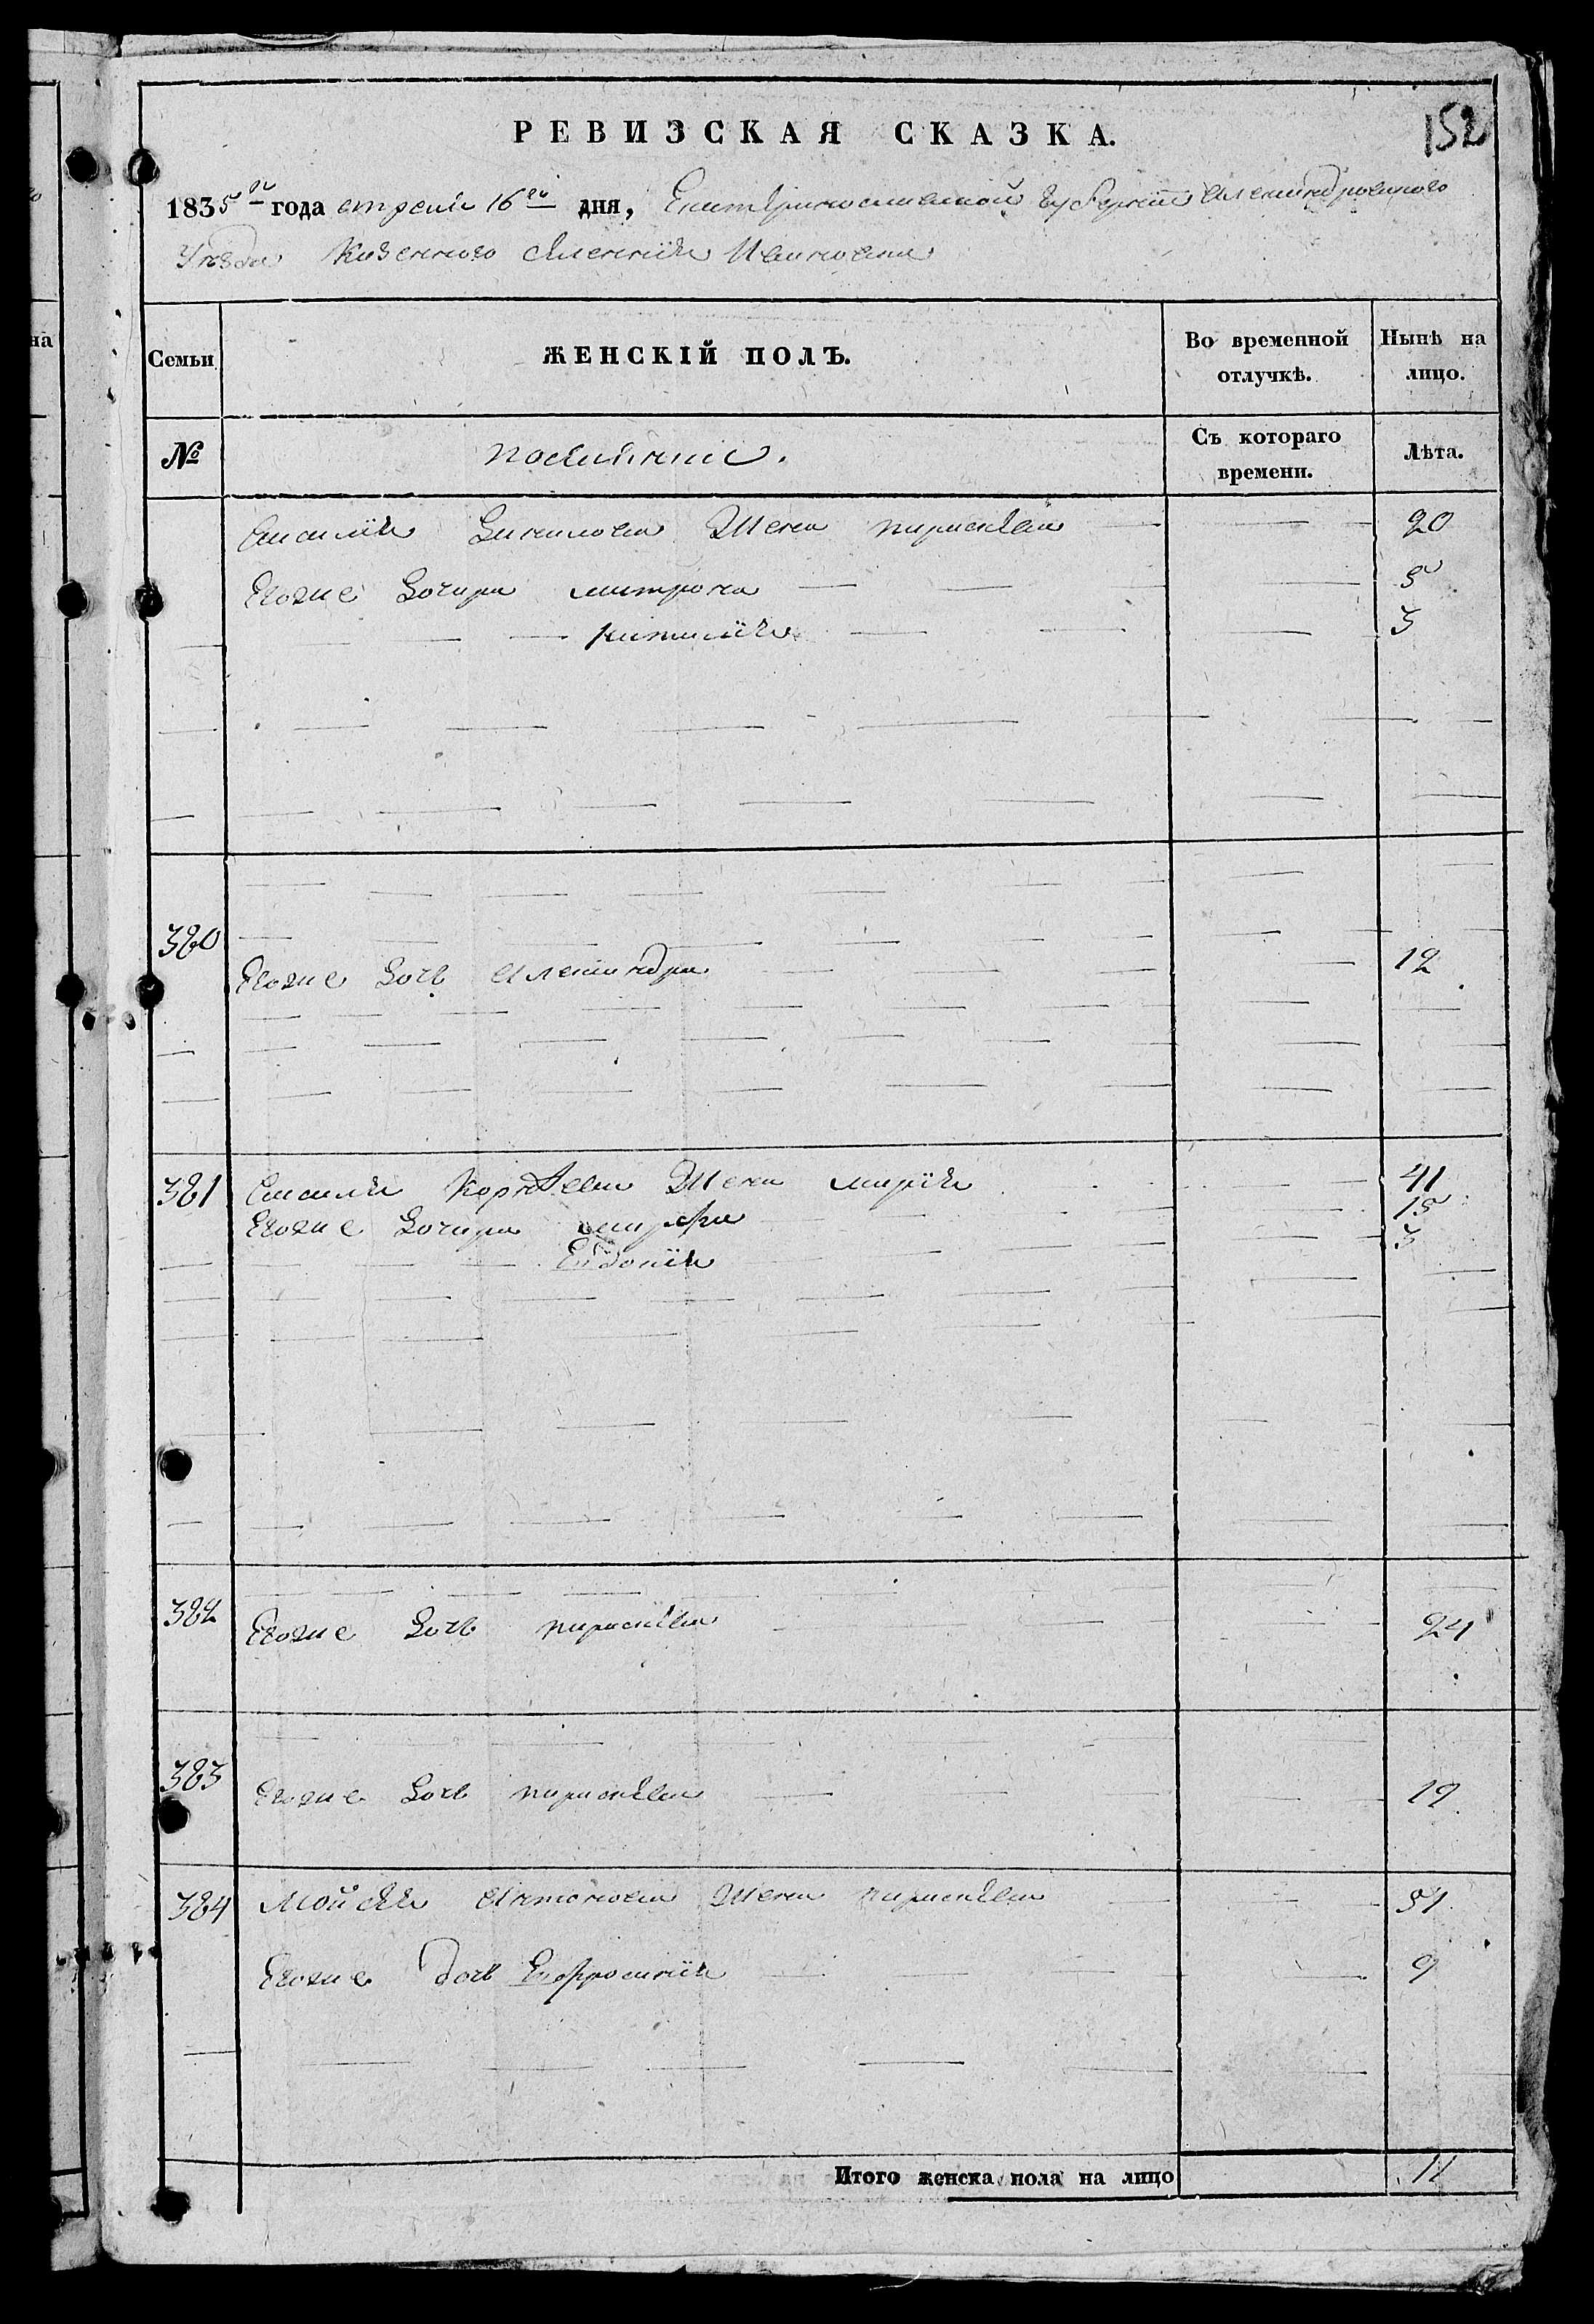 152
РЕВИЗСКАЯ СКАЗКА.
1835го года апреля 16го дня, Екатеринославской Губернии Александровского
Уезда Казенного селения Ивановки
Семьи
ЖЕНСКІЙ ПОЛЪ.
Во временной отлучкѣ.
Нынѣ на лицо.
№
Съ котораго времени.
Лѣта.
Василия Данилова Жена параскева 20
Егоже дочери матрона 5
наталия 3
380
Егоже дочь Александра 12
381 Василия Корнеева Жена мария 41
Егоже дочери марфа 15
Евдокия 3
382
Егоже дочь параскева 24
383
Егоже дочь параскева 19
384 Мойсея Антонова Жена параскева 54
Егоже дочь Евфросиния 9
Итого женска пола на лицо 11